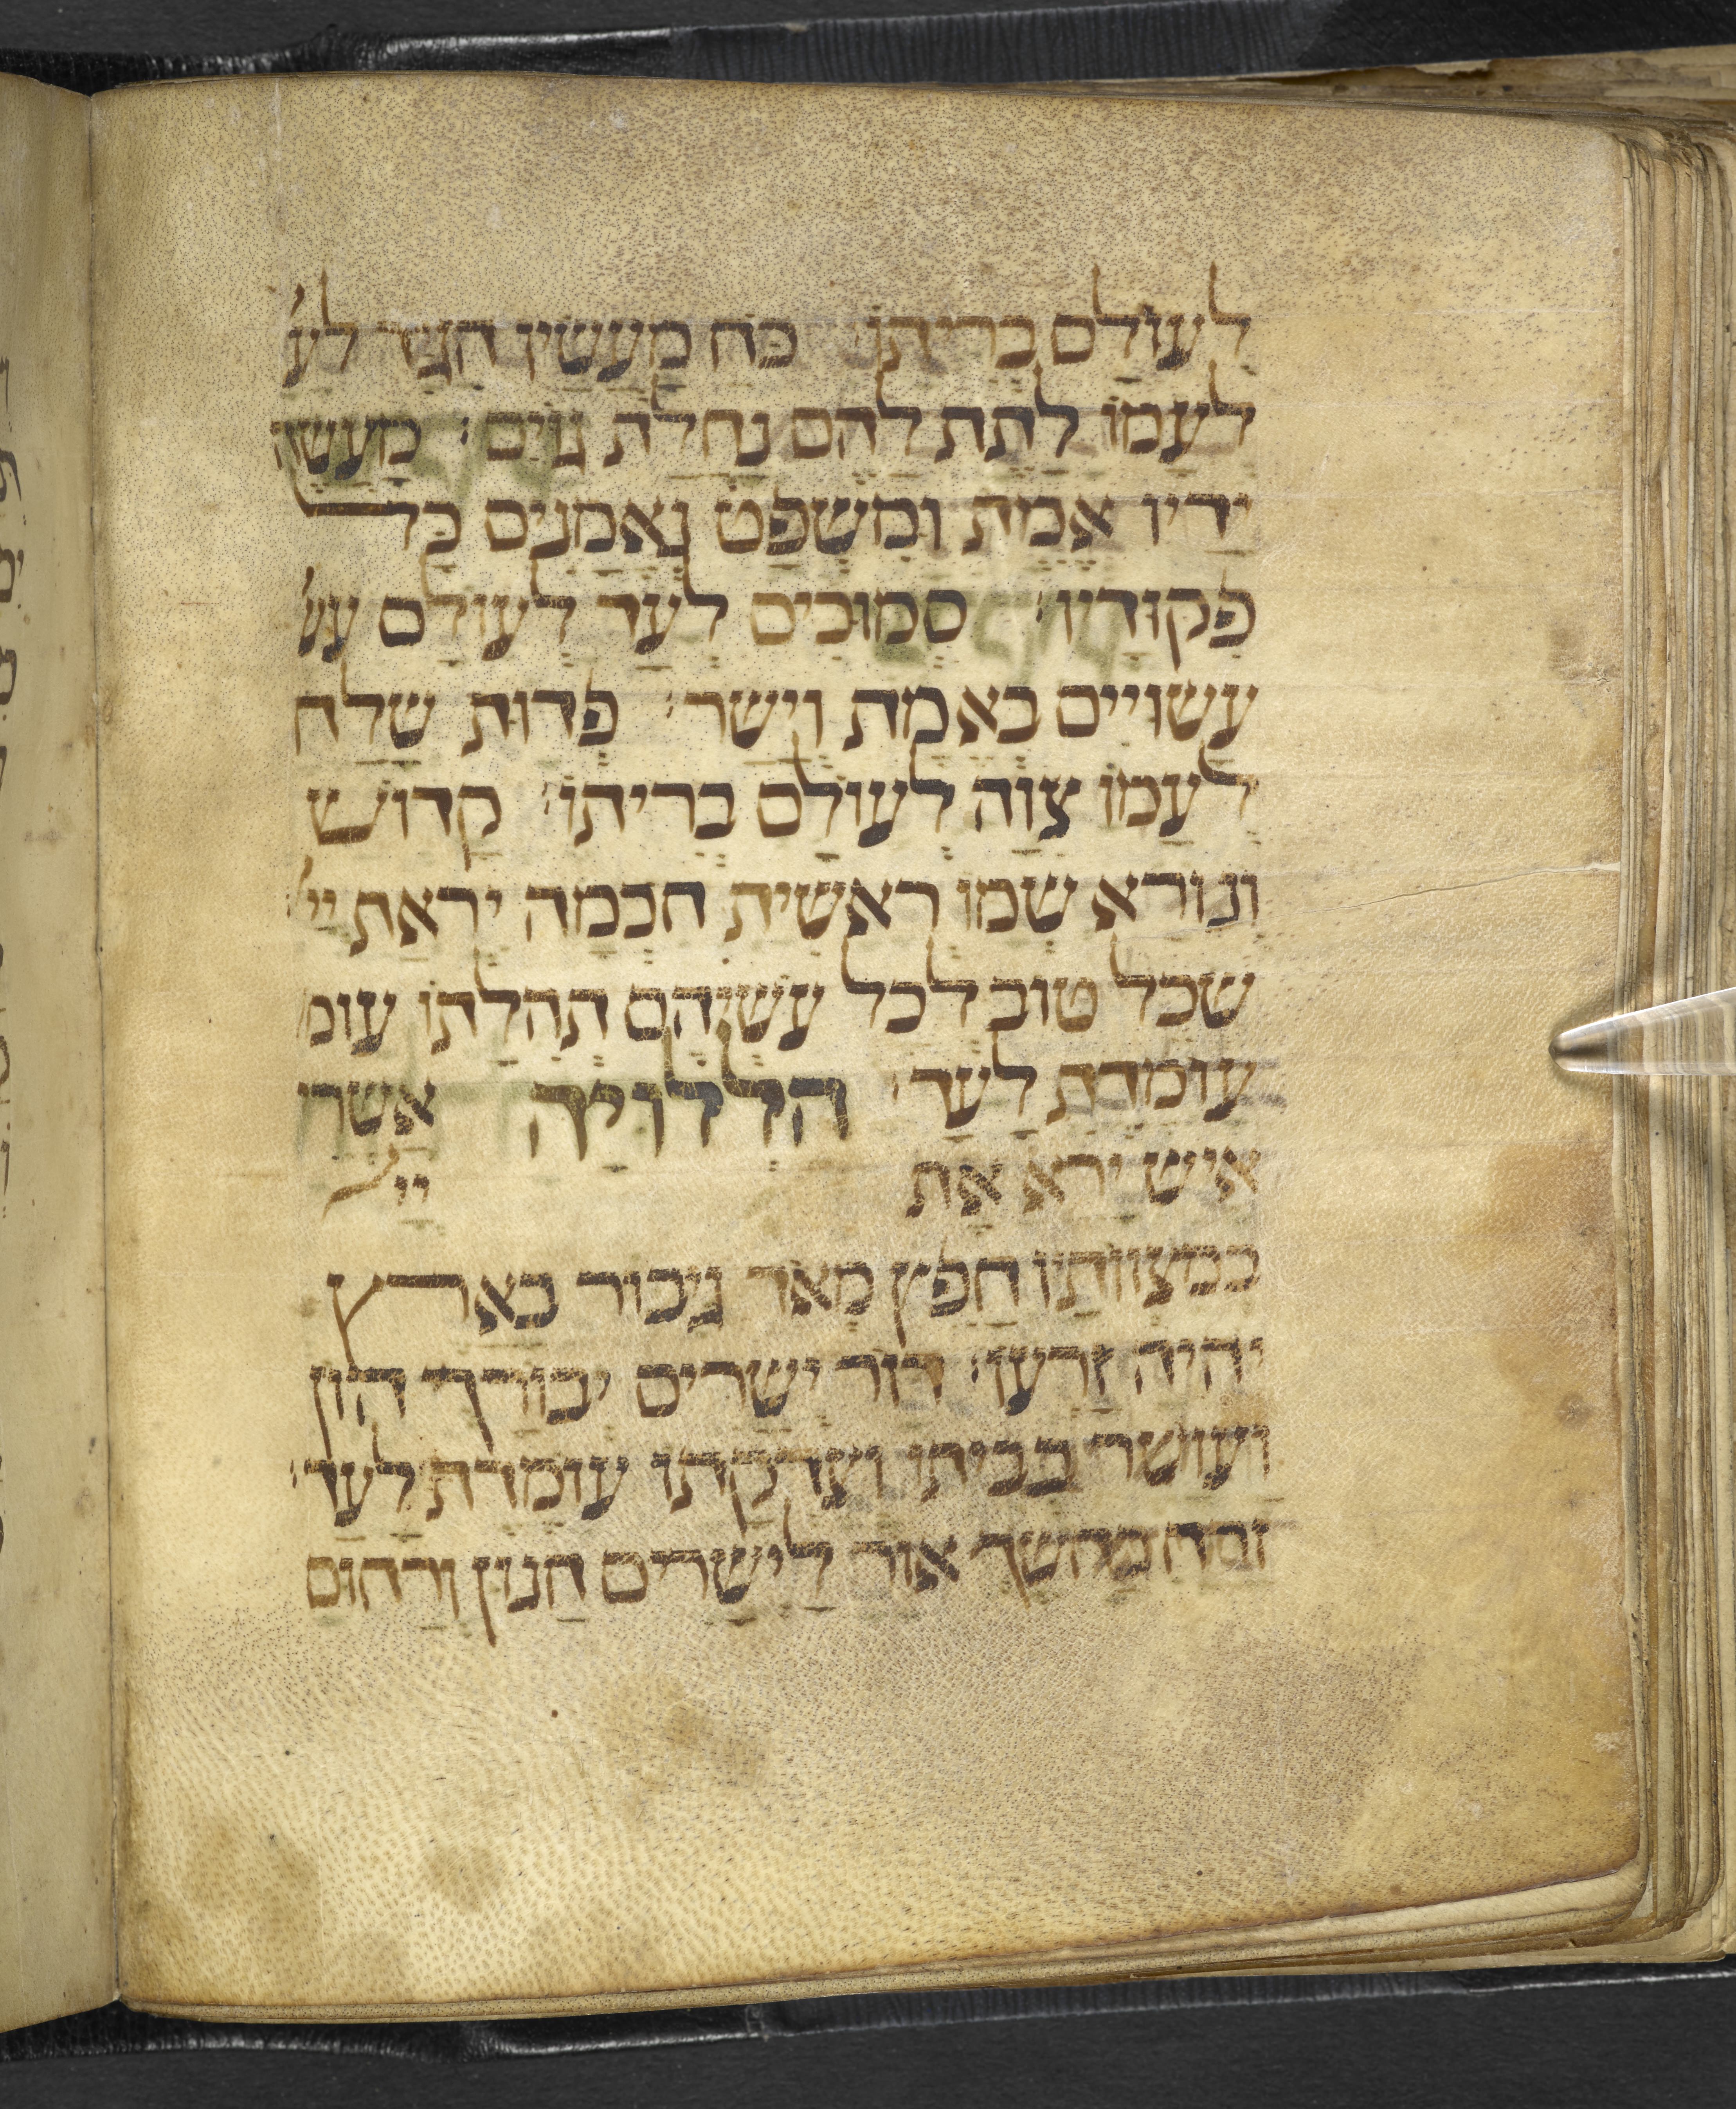 לעולם בריתו׃ כח מעשיו הגיד לע׳
לעמו לתת להם נחלת גוים׃ מעשי
ידיו אמת ומשפט נאמנים כל
פקודיו׃ סמוכים לעד לעולם עש׳
עשויים באמת וישר׃ פדות שלח
לעמו צוה לעולם בריתו׃ קדוש
ונורא שמו ראשית חכמה יראת יי׳
שכל טוב לכל עשיהם תהלתו עומ׳
עומדת לעד׃ הללויה אשרי
איש ירא את יי׳
במצוותיו חפץ מאד גיבור בארץ
יהיה זרעו׃ דור ישרים יבורך הון
ועושר בביתו וצדקתו עומדת לעד׃
זרח בחשך אור לישרים חנון ורחום